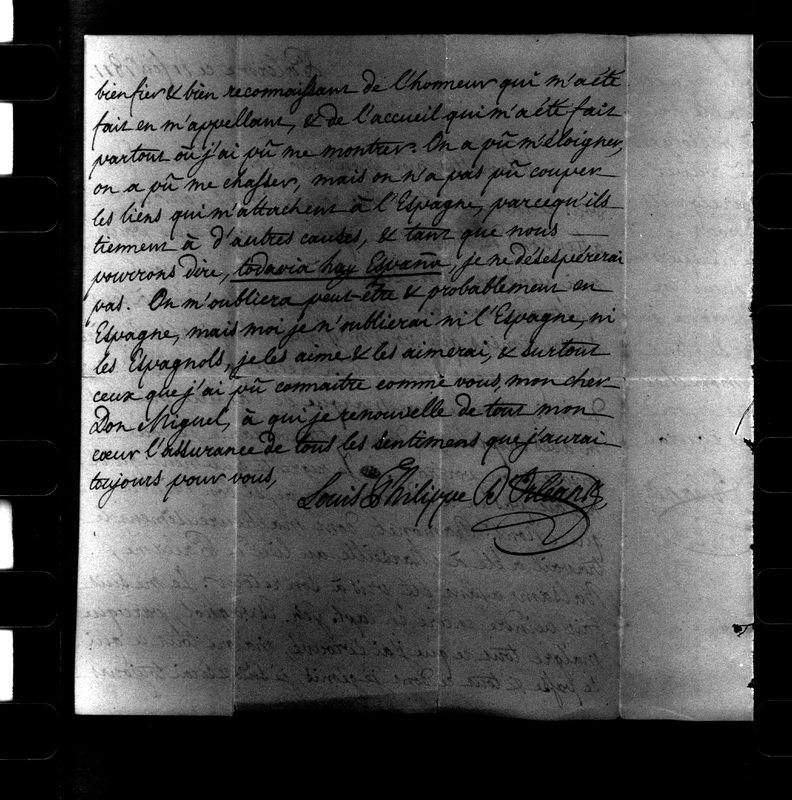 bien fier & bien reconnaissant de l'honneur qui m'a été
fait en m'appellant, & de l'accueil qui m'a été fait
partout où j'ai pû me montrer. On a pû m'éloigner,
on a pû me chasser, mais on n'a pas pû couper
les liens qui m'attachent à l'Espagne, parcequ'ils
tiennent à d'autres causes, & tant que nous
pourrons dire, todavia hay España, je ne désespérerai
pas. On m'oubliera peut-être & probablement en
Espagne, mais moi je n'oublierai ni l'Espagne, ni
les Espagnols, je les aime & les aimerai, & surtout
ceux que j'ai pû connaitre comme vous, mon cher
Don Miguel, à qui je renouvelle de tout mon
cœur l'assurance de tous les sentimens que j'aurai
toujours pour vous,
Louis Philippe D'Orléans,